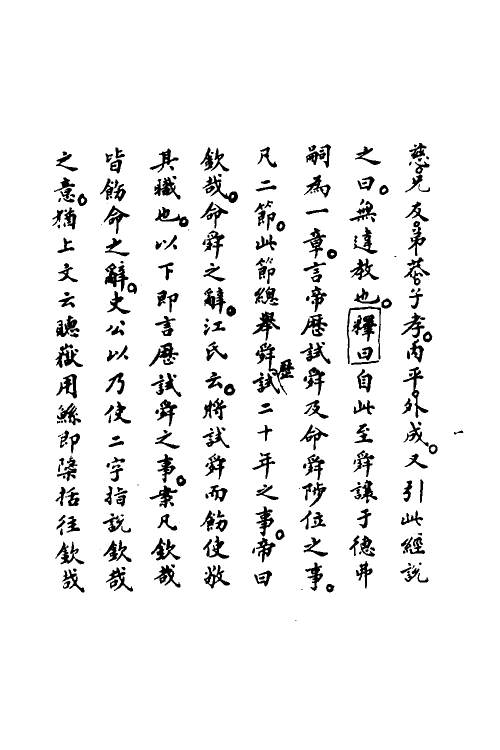 慈。兄友。弟恭。子孝。內平。外成。又引此經說
之曰。無違教也。釋曰自此至舜讓于德弗
嗣為一章。言帝歷試舜及命舜陟位之事。
凡二節。此節總舉舜歷試二十年之事。帝曰
欽哉。命舜之辭。江氏云。將試舜而飭使敬
其職也。以下即言歷試舜之事。案凡欽哉
皆飭命之辭。史公以乃使二字指說欽哉
之意。猶上文云聽嶽用鯀即櫽括往欽哉